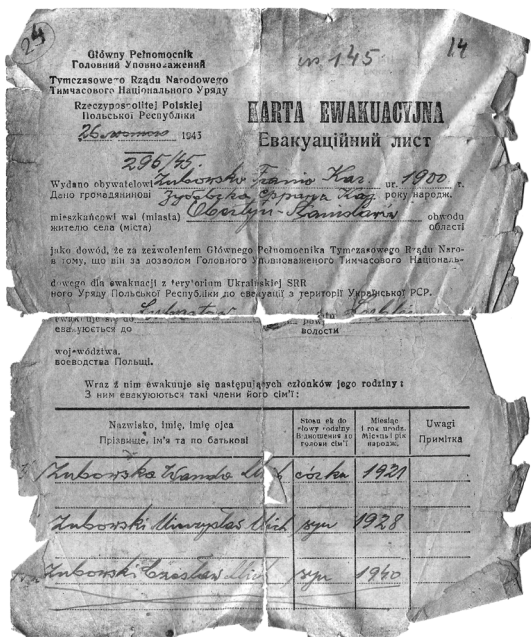 24
nr 145
14
Główny Pełnomocnik
Головний Уповноважений
Tymczasowego Rządu Narodowego
Тимчасового Національного Уряду
Rzeczypospolitej Polskiej
Польської Республіки
26 1945
KARTA EWAKUACYJNA
Евакуаційний лист
296/45.
Wydano obywatelowi Zuborska Frania Kaz ur. 1900 r.
Дано громадянинові Каз року народж.
mieszkańcowi wsi (miasta) obwodu
жителю села (міста) області
jako dowód, że za zezwoleniem Głównego Pełnomocnika Tymczasowego Rządu Naro-
в тому, що він за дозволом Головного Уповноваженого Тимчасового Національ-
dowego dla ewakuacji z terytorium Ukraińskiej SRR
ного Уряду Польської Республіки до евакуації з території Української РСР.
ewakuuje się do
евакуюється до волости
województwa.
воеводства Польщі.
Wraz z nim ewakuuje się następujących członków jego rodziny:
З ним евакуюються такі члени його сім'ї:
Nazwisko, imię, imię ojca
Прізвище, ім'я та по батькові
Stosunek do głowy rodziny
Відношення до голови сім'ї
Miesiąc i rok urodz.
Місяць і рік народж.
Uwagi
Примітка
Zuborska Wanda córka 1921
Zuborski Mieczysław Mich syn 1928
Zuborski Czesław Mich syn 1940